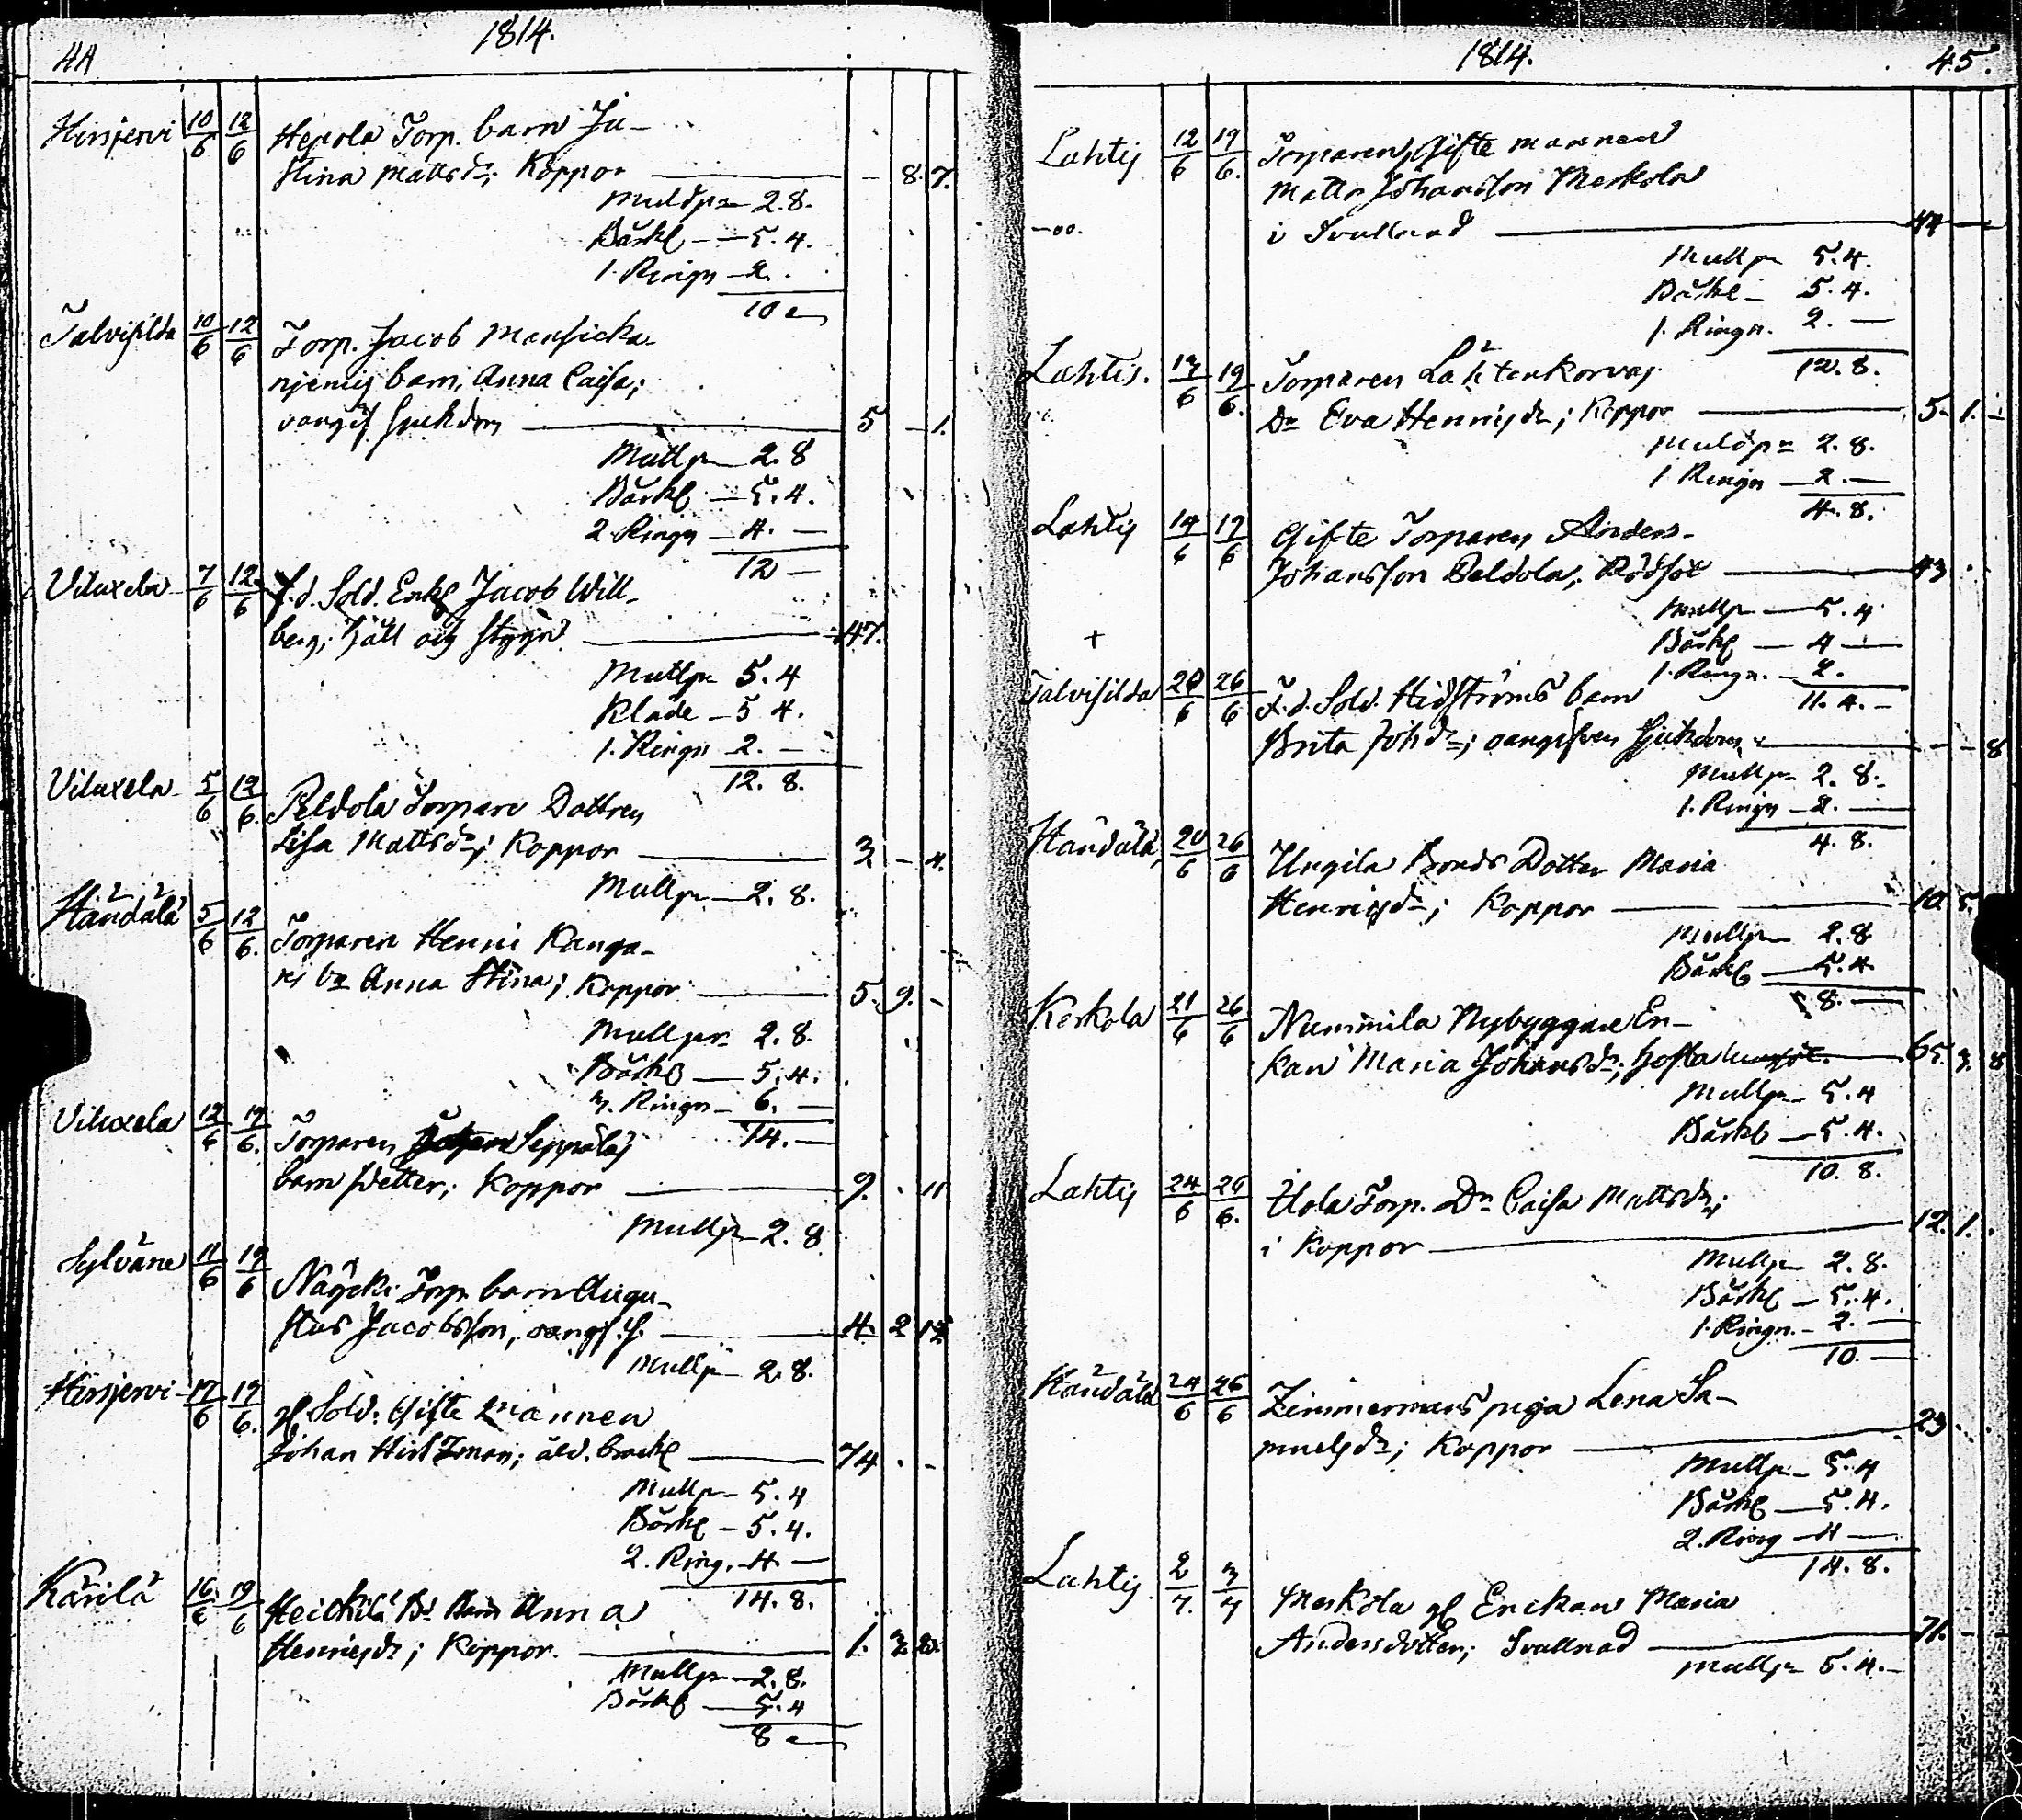 44
1814.
Hirsjervi 10/6 12/6 Hepola Torp. barn Ju-
stina Mattsdr; Koppor — - 8. 7.
Muldpr 2.8.
Bårkl — 5.4.
1. Ringn — 2.
10 —
Talvisilda 10/6 12/6 Torp. Jacob Mansicka-
njemis barn, Anna Caisa;
oangif. sjukdom — 5 - 1.
Mullpr 2.8
Bårkl — 5.4.
2 Ringn — 4. —
12 —
Viluxela 7/6 12/6 f.d. Sold. Enkl Jacob Will-
berg; håll och styng — 47.
Mullpr 5.4
Kläde — 5 4.
1. Ringn 2. —
12. 8.
Viluxela 5/6 12/6. Peldola Torpare Dottren
Lisa Mattsdr; Koppor — 3. - 4.
Mullpr — 2.8.
Händälä 5/6 12/6. Torparen Henric Kanga-
s bn Anna Stina; Koppor — 5. 9. -
Mullpr 2.8.
Bårkl — 5.4.
3. Ringn — 6. —
14. —
Viluxela 12/6 19/6. Torparen Seppäläs
barn Petter; Koppor — 9. . 11
Mullpr 2.8
Sylväne 11/6 19/6 Näycki Torp. barn Augu-
stus Jacobsson, oangf. S. — 4. 2 12
Mullpr 2.8.
Hirsjervi 17/6 19/6. gl. Sold. Gifte mannen
Johan Hirstman; åld. brackl — 74 . -
Mullpr — 5.4
Bårkl — 5.4.
2. Ring. — 4 —
14. 8.
Kärilä 16/6 19/6 Heickilä Bd Barn Anna
Henricsdr; Koppor. — 1. 3. 20.
Mullpr — 2.8.
Bårkl — 5.4
8 —
1814.
45.
Lahtis 12/6 19/6. Torparen, Gifte mannen
Matts Johansson Meskola
i Svullnad — 44 —
Mullpr 5.4.
Bårkl — 5.4.
1. Ringn. 2. —
12. 8.
Lahtis. 13/6 19/6. Torparen Lähtenkorvas
Dr Eva Henricsdr; Koppor — 5. 1. -
Muldpr 2.8.
1 Ringn — 2. —
4. 8.
Lahtis 14/6 19/6 Gifte Torparen Anders
Johansson Peldola; Rödsot — 43 .
Mullpr — 5.4
Bårkl — 4 —
1. Ringn. — 2.
11. 4. -
+
Talvisilda 20/6 26/6 F.d. Sold. Hidströms barn
Brita Johdr; oangifven Sjukdom — - - 8
Mullpr 2.8.
1. Ringn — 2. —
4. 8.
Händälä 20/6 26/6 Ungila Bonds Dotter Maria
Henricsdr; Koppor — 10 5.
Mullpr 2.8
Bårkl — 5.4
8. —
Keskola 21/6 26/6 Nummila Nybyggare En-
kan Maria Johansdr; — 65. 3. 8
Mullpr — 5.4
Bårkl — 5.4.
10. 8.
Lahtis 24/6 26/6. Uola Torp. Dr Caisa Mattsdr;
i Koppor — 12. 1.
Mullpr 2.8.
Bårkl — 5.4.
1. Ringn. — 2. —
10 —
Händälä 24/6 26/6 Zimmermans piga Lena Sa-
muelsdr; Koppor — 23
Mullpr — 5.4
Bårkl — 5.4.
2. Ring — 4 —
14. 8.
Lahtis 2/7. 3/7 Meskola gl Enckan Maria
Andersdotter; Svullnad — 71. - -
Mullpr 5.4. —